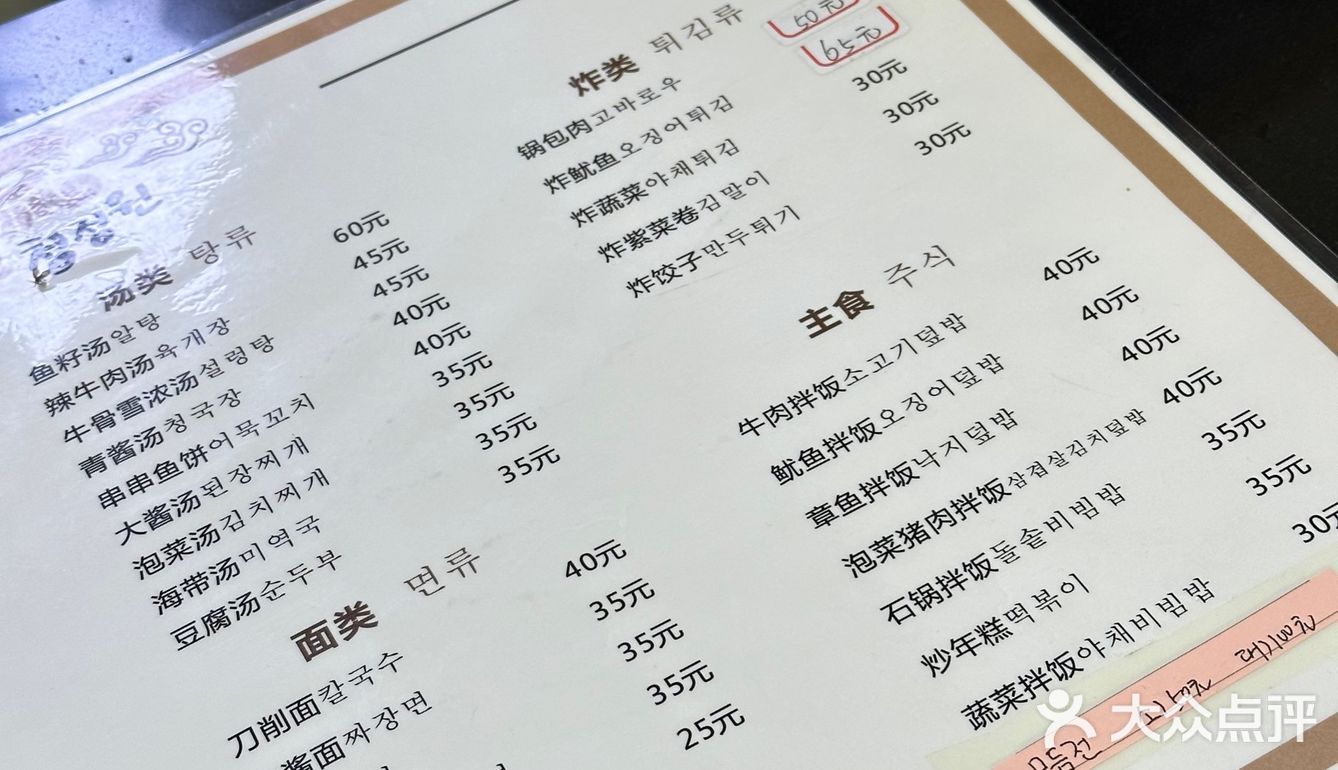 汤类 탕류
鱼籽汤알탕 60元
辣牛肉汤육개장 45元
牛骨雪浓汤설렁탕 45元
青酱汤청국장 40元
串串鱼饼어묵꼬치 40元
大酱汤된장찌개 35元
泡菜汤김치찌개 35元
海带汤미역국 35元
豆腐汤순두부 35元
面类 면류
刀削面칼국수 40元
酱面짜장면 35元
35元
35元
25元
炸类 튀김류
锅包肉고바로우 50元
炸鱿鱼오징어튀김 65元
炸蔬菜야채튀김 30元
炸紫菜卷김말이 30元
炸饺子만두튀기 30元
主食 주식
牛肉拌饭소고기덮밥 40元
鱿鱼拌饭오징어덮밥 40元
章鱼拌饭낙지덮밥 40元
泡菜猪肉拌饭삼겹살김치덮밥 40元
石锅拌饭돌솥비빔밥 35元
炒年糕떡볶이 35元
蔬菜拌饭야채비빔밥 30元
大众点评